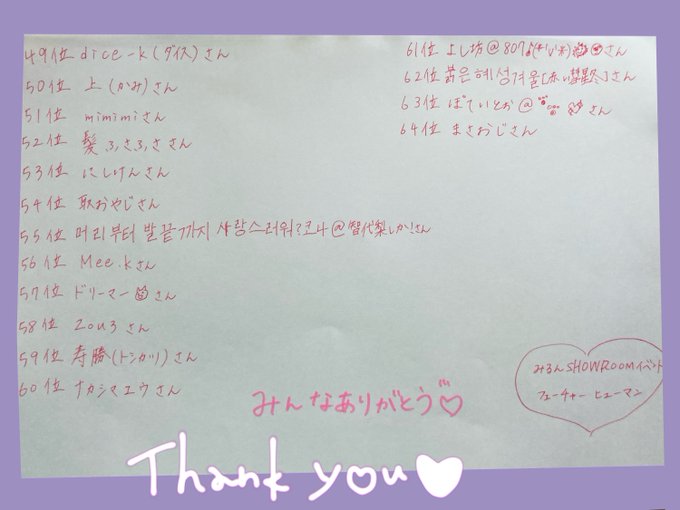 49位 dice-k(ダイス)さん
50位 上(かみ)さん
51位 mimimiさん
52位 髪ふさふささん
53位 にしけんさん
54位 取おやじさん
55位 머리부터 발끝까지 사랑스러워?코나@智代梨しか!さん
56位 Mee.kさん
57位 ドリーマー さん
58位 Zou3さん
59位 寿勝(トシカツ)さん
60位 ナカシマユウさん
61位 よし坊@807 さん
62位 붉은 혜성겨울[赤い彗星冬]さん
63位 ぱてぃとぉ@ さん
64位 まさおじさん
みるんSHOWROOMイベント
フューチャーヒューマン
みんなありがとう♡
Thank you